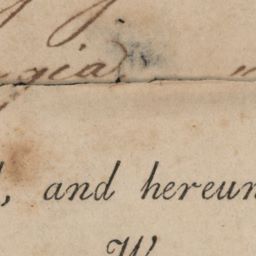 gia
, and hereun
W